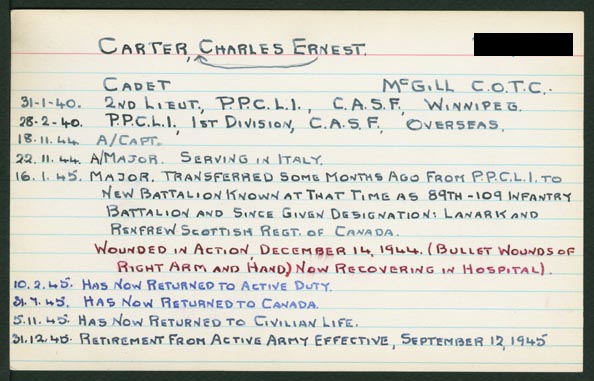 CARTER, CHARLES ERNEST.
CADET McGILL C.O.T.C.
31-1-40. 2ND LIEUT., P.P.C.L.I., C.A.S.F., WINNIPEG.
28-2-40. P.P.C.L.I., 1ST DIVISION, C.A.S.F., OVERSEAS.
18.11.44. A/CAPT.
22.11.44. A/MAJOR. SERVING IN ITALY.
16.1.45. MAJOR. TRANSFERRED SOME MONTHS AGO FROM P.P.C.L.I. TO
NEW BATTALION KNOWN AT THAT TIME AS 89TH-109 INFANTRY
BATTALION AND SINCE GIVEN DESIGNATION: LANARK AND
RENFREW SCOTTISH REGT. OF CANADA.
WOUNDED IN ACTION, DECEMBER 14, 1944. (BULLET WOUNDS OF
RIGHT ARM AND HAND) NOW RECOVERING IN HOSPITAL).
10.2.45. HAS NOW RETURNED TO ACTIVE DUTY.
31.7.45. HAS NOW RETURNED TO CANADA.
5.11.45. HAS NOW RETURNED TO CIVILIAN LIFE.
31.12.45. RETIREMENT FROM ACTIVE ARMY EFFECTIVE, SEPTEMBER 12, 1945